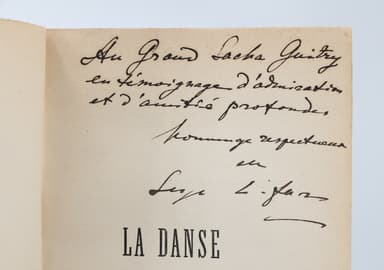 Au Grand Sacha Guitry
en témoignage d'admiration
et d'amitié profondes
hommage respectueux
Serge Lifar
LA DANSE